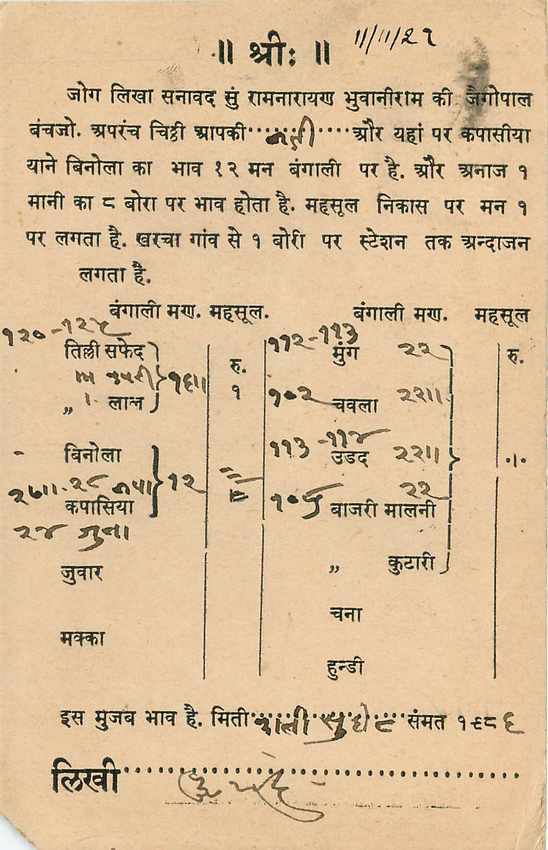 ॥ श्रीः ॥
जोग लिखा सनावद सुं रामनारायण भुवानीराम की जैगोपाल
बंचजो. अपरंच चिठ्ठी आपकी ............ और यहां पर कपासीया
याने बिनोला का भाव १२ मन बंगाली पर है. और अनाज १
मानी का ८ बोरा पर भाव होता है. महसूल निकास पर मन १
पर लगता है. खरचा गांव से १ बोरी पर स्टेशन तक अन्दाजन
लगता है.
बंगाली मण. महसूल. बंगाली मण. महसूल
१२०-१२४ ११२-११३
तिल्ली सफेद रु. १ मुंग २२ रु.
„ लाल १०२ चवला २२॥
११३-११४
बिनोला १२ उडद २२॥ .।.
२७॥-२८ २२
कपासिया बाजरी मालनी
२४ जुना
जुवार „ कुटारी
चना
मक्का
हुन्डी
इस मुजब भाव है. मिती सुदी संमत १९८६
लिखी